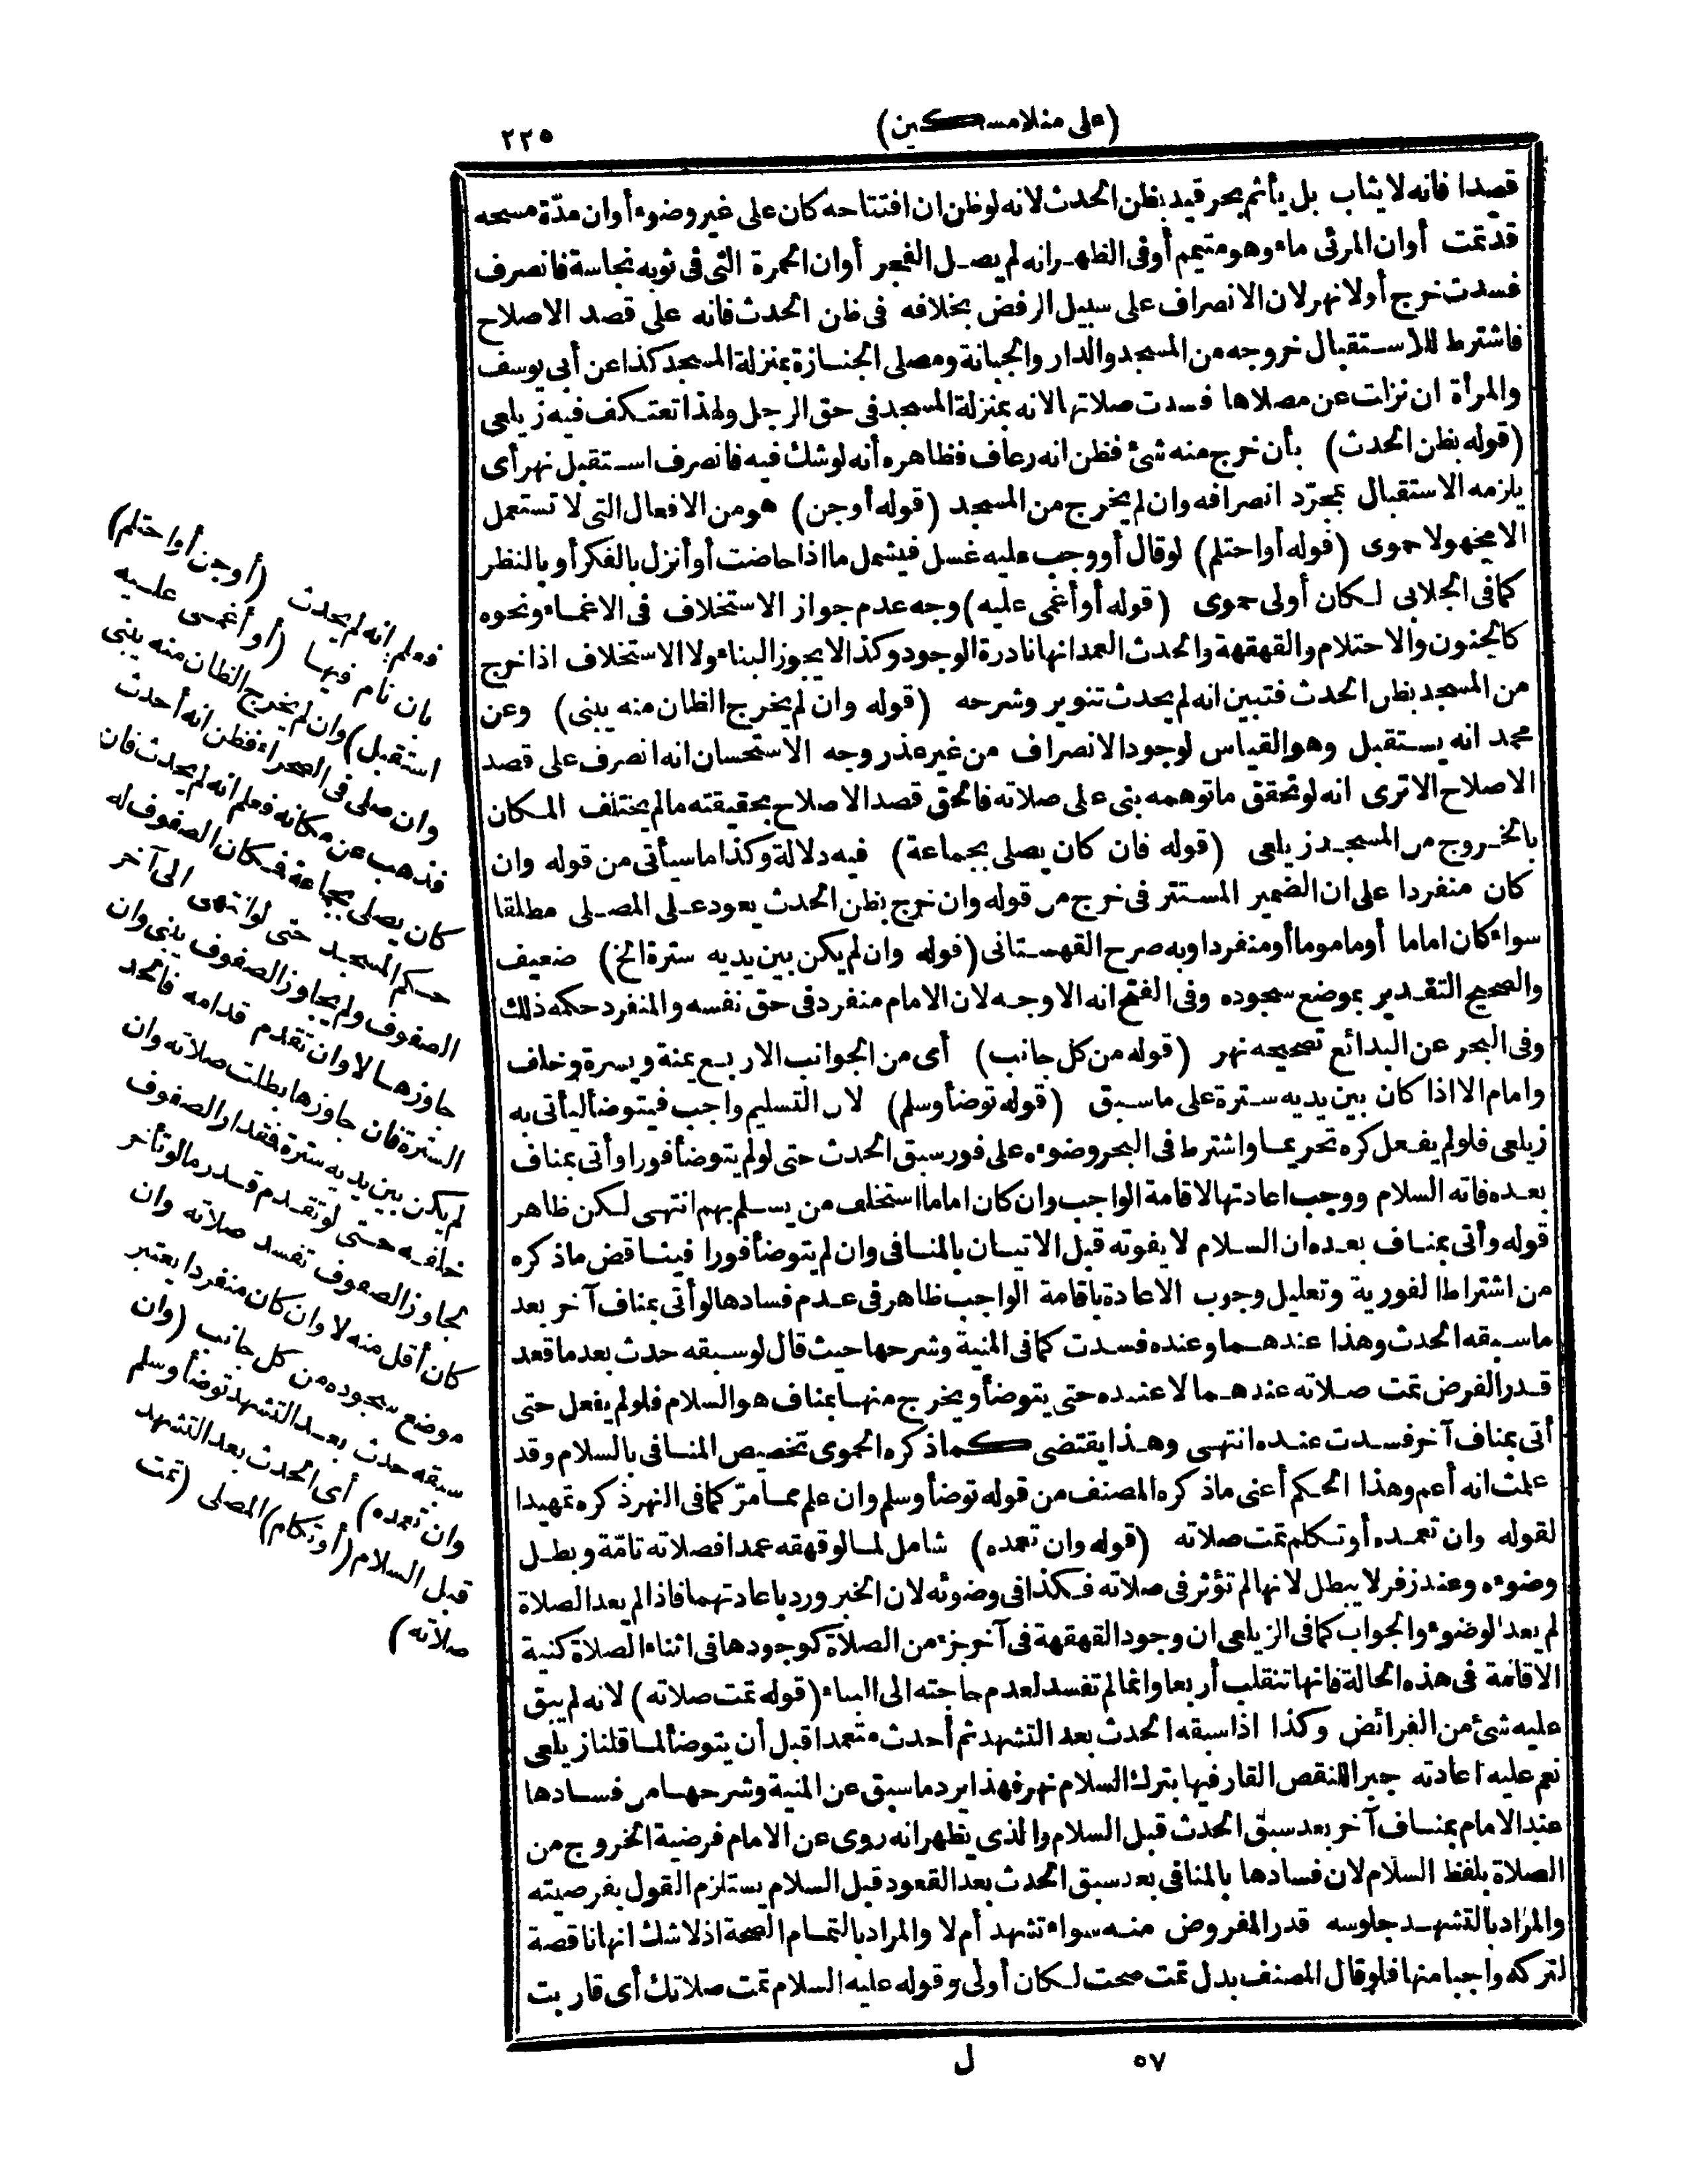 (على منلا مسكين)
٢٢٥
قصدا فانه لا يثاب بل يأثم بحر قيد بظن الحدث لانه لو ظن ان افتتاحه كان على غير وضوء أو ان مدّة مسحه
قد تمت أو ان المرئى ماء وهو متيمم أو فى الظهر انه لم يصل الفجر أو ان الحمرة التى فى ثوبه نجاسة فانصرف
فسدت خرج أو لا نهر لان الانصراف على سبيل الرفض بخلافه فى ظن الحدث فانه على قصد الاصلاح
فاشترط للاستقبال خروجه من المسجد والدار والجبانة ومصلى الجنازة بمنزلة المسجد كذا عن أبى يوسف
والمرأة ان نزلت عن مصلاها فسدت صلاتها لانه بمنزلة المسجد فى حق الرجل ولهذا تعتكف فيه زيلعى
(قوله بظن الحدث) بأن خرج منه شئ فظن انه رعاف فظاهره أنه لو شك فيه فانصرف استقبل نهر أى
يلزمه الاستقبال بمجرّد انصرافه وان لم يخرج من المسجد (قوله أو جن) هو من الافعال التى لا تستعمل
الا مجهولا حموى (قوله أو احتلم) لو قال أو وجب عليه غسل فيشمل ما اذا حاضت أو أنزل بالفكر أو بالنظر
كما فى الجلابى لكان أولى حموى (قوله أو أغمى عليه) وجه عدم جواز الاستخلاف فى الاغماء ونحوه
كالجنون والاحتلام والقهقهة والحدث العمد انها نادرة الوجود وكذا لا يجوز البناء ولا الاستخلاف اذا خرج
من المسجد بظن الحدث فتبين انه لم يحدث تنوير وشرحه (قوله وان لم يخرج الظان منه يبنى) وعن
محمد انه يستقبل وهو القياس لوجود الانصراف من غير عذر وجه الاستحسان انه انصرف على قصد
الاصلاح الا ترى انه لو تحقق ما توهمه بنى على صلاته فالحق قصد الاصلاح بحقيقته ما لم يختلف المكان
بالخروج من المسجد زيلعى (قوله فان كان يصلى بجماعة) فيه دلالة وكذا ما سيأتى من قوله وان
كان منفردا على ان الضمير المستتر فى خرج من قوله وان خرج بظن الحدث يعود على المصلى مطلقا
سواء كان اماما أو ماموما أو منفردا وبه صرح القهستانى (قوله وان لم يكن بين يديه سترة الخ) ضعيف
والصحيح التقدير بموضع سجوده وفى الفتح انه الاوجه لان الامام منفرد فى حق نفسه والمنفرد حكمه ذلك
وفى البحر عن البدائع تصحيحه نهر (قوله من كل جانب) أى من الجوانب الاربع يمنة ويسرة وخلف
وامام الا اذا كان بين يديه سترة على ما سبق (قوله توضأ وسلم) لان التسليم واجب فيتوضأ ليأتى به
زيلعى فلو لم يفعل كره تحريما واشترط فى البحر وضوءه على فور سبق الحدث حتى لو لم يتوضأ فورا وأتى بمناف
بعده فاته السلام ووجب اعادتها لاقامة الواجب وان كان اماما استخلف من يسلم بهم انتهى لكن ظاهر
قوله وأتى بمناف بعده ان السلام لا يفوته قبل الاتيان بالمنافى وان لم يتوضأ فورا فيناقض ما ذكره
من اشتراط الفورية وتعليل وجوب الاعادة باقامة الواجب ظاهر فى عدم فسادها لو أتى بمناف آخر بعد
ما سبقه الحدث وهذا عندهما وعنده فسدت كما فى المنية وشرحها حيث قال لو سبقه حدث بعد ما قعد
قدر الفرض تمت صلاته عندهما لا عنده حتى يتوضأ ويخرج منها بمناف هو السلام فلو لم يفعل حتى
أتى بمناف آخر فسدت عنده انتهى وهذا يقتضى كما ذكره الحموى تخصيص المنافى بالسلام وقد
علمت انه أعم وهذا الحكم أعنى ما ذكره المصنف من قوله توضأ وسلم وان علم مما مرّ كما فى النهر ذكره تمهيدا
لقوله وان تعمده أو تكلم تمت صلاته (قوله وان تعمده) شامل لما لو قهقه عمدا فصلاته تامّة وبطل
وضوءه وعند زفر لا يبطل لانها لم تؤثر فى صلاته فكذا فى وضوئه لان الخبر ورد باعادتهما فاذا لم يعد الصلاة
لم يعد الوضوء والجواب كما فى الزيلعى ان وجود القهقهة فى آخر جزء من الصلاة كوجودها فى اثناء الصلاة كنية
الاقامة فى هذه الحالة فانها تنقلب أربعا وانما لم تفسد لعدم حاجته الى البناء (قوله تمت صلاته) لانه لم يبق
عليه شئ من الفرائض وكذا اذا سبقه الحدث بعد التشهد ثم أحدث متعمدا قبل أن يتوضأ لما قلنا زيلعى
نعم عليه اعادته جبرا للنقص القار فيها بترك السلام نهر فهذا يرد ما سبق عن المنية وشرحها من فسادها
عند الامام بمناف آخر بعد سبق الحدث قبل السلام والذى يظهر انه روى عن الامام فرضية الخروج من
الصلاة بلفظ السلام لان فسادها بالمنافى بعد سبق الحدث بعد القعود قبل السلام يستلزم القول بفرضيته
والمراد بالتشهد جلوسه قدر المفروض منه سواء تشهد أم لا والمراد بالتمام الصحة اذ لا شك انها ناقصة
لتركه واجبا منها فلو قال المصنف بدل تمت صحت لكان أولى وقوله عليه السلام تمت صلاتك أى قاربت
فعلم انه لم يحدث (أو جن أو احتلم)
بان نام فيها (أو أغمى عليه
استقبل) وان لم يخرج الظان منه يبنى
وان صلى فى الصحراء فظن انه أحدث
فذهب عن مكانه فعلم انه لم يحدث فان
كان يصلى بجماعة فمكان الصفوف له
حكم المسجد حتى لو انتهى الى آخر
الصفوف ولم يجاوز الصفوف يبنى وان
جاوزها لا وان تقدم قدامه فالحد
السترة فان جاوزها بطلت صلاته وان
لم يكن بين يديه سترة فقدار الصفوف
خلفه حتى لو تقدم قدر ما لو تأخر
تجاوز الصفوف تفسد صلاته وان
كان أقل منه لا وان كان منفردا يعتبر
موضع سجوده من كل جانب (وان
سبقه حدث بعد التشهد توضأ وسلم
وان تعمده) أى الحدث بعد التشهد
قبل السلام (أو تكلم) المصلى (تمت
صلاته)
٥٧ ل